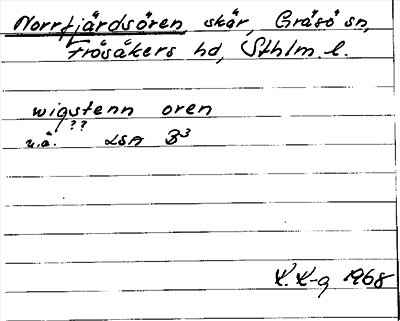 Norrfjärdsören skär, Gräsö sn,
Frösåkers hd, Sthlm. l.
wigstenn oren
??
u.å. LSA B3
K. K-g 1968